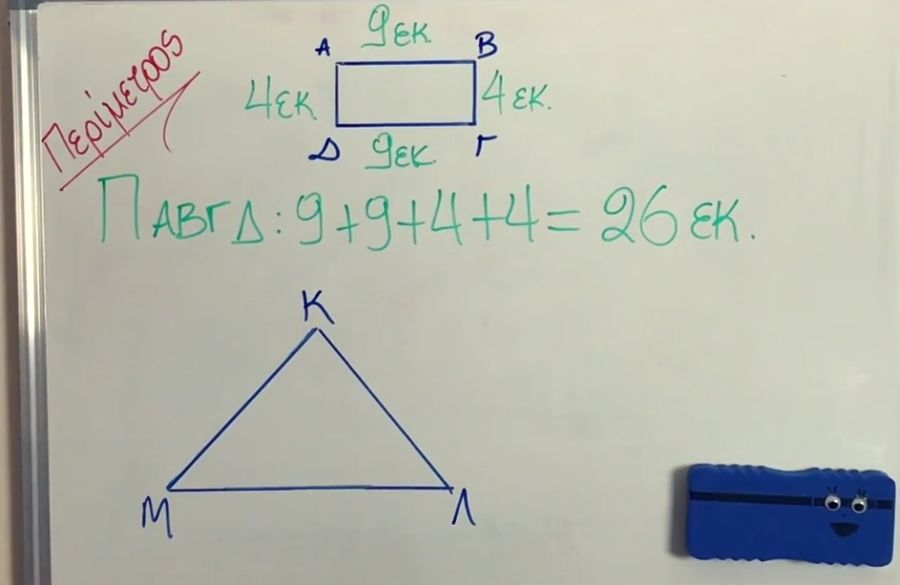 Περίμετρος
9 εκ
Α Β
4 εκ 4 εκ.
Δ 9 εκ. Γ
Π ΑΒΓΔ: 9+9+4+4= 26 εκ.
Κ
Μ Λ